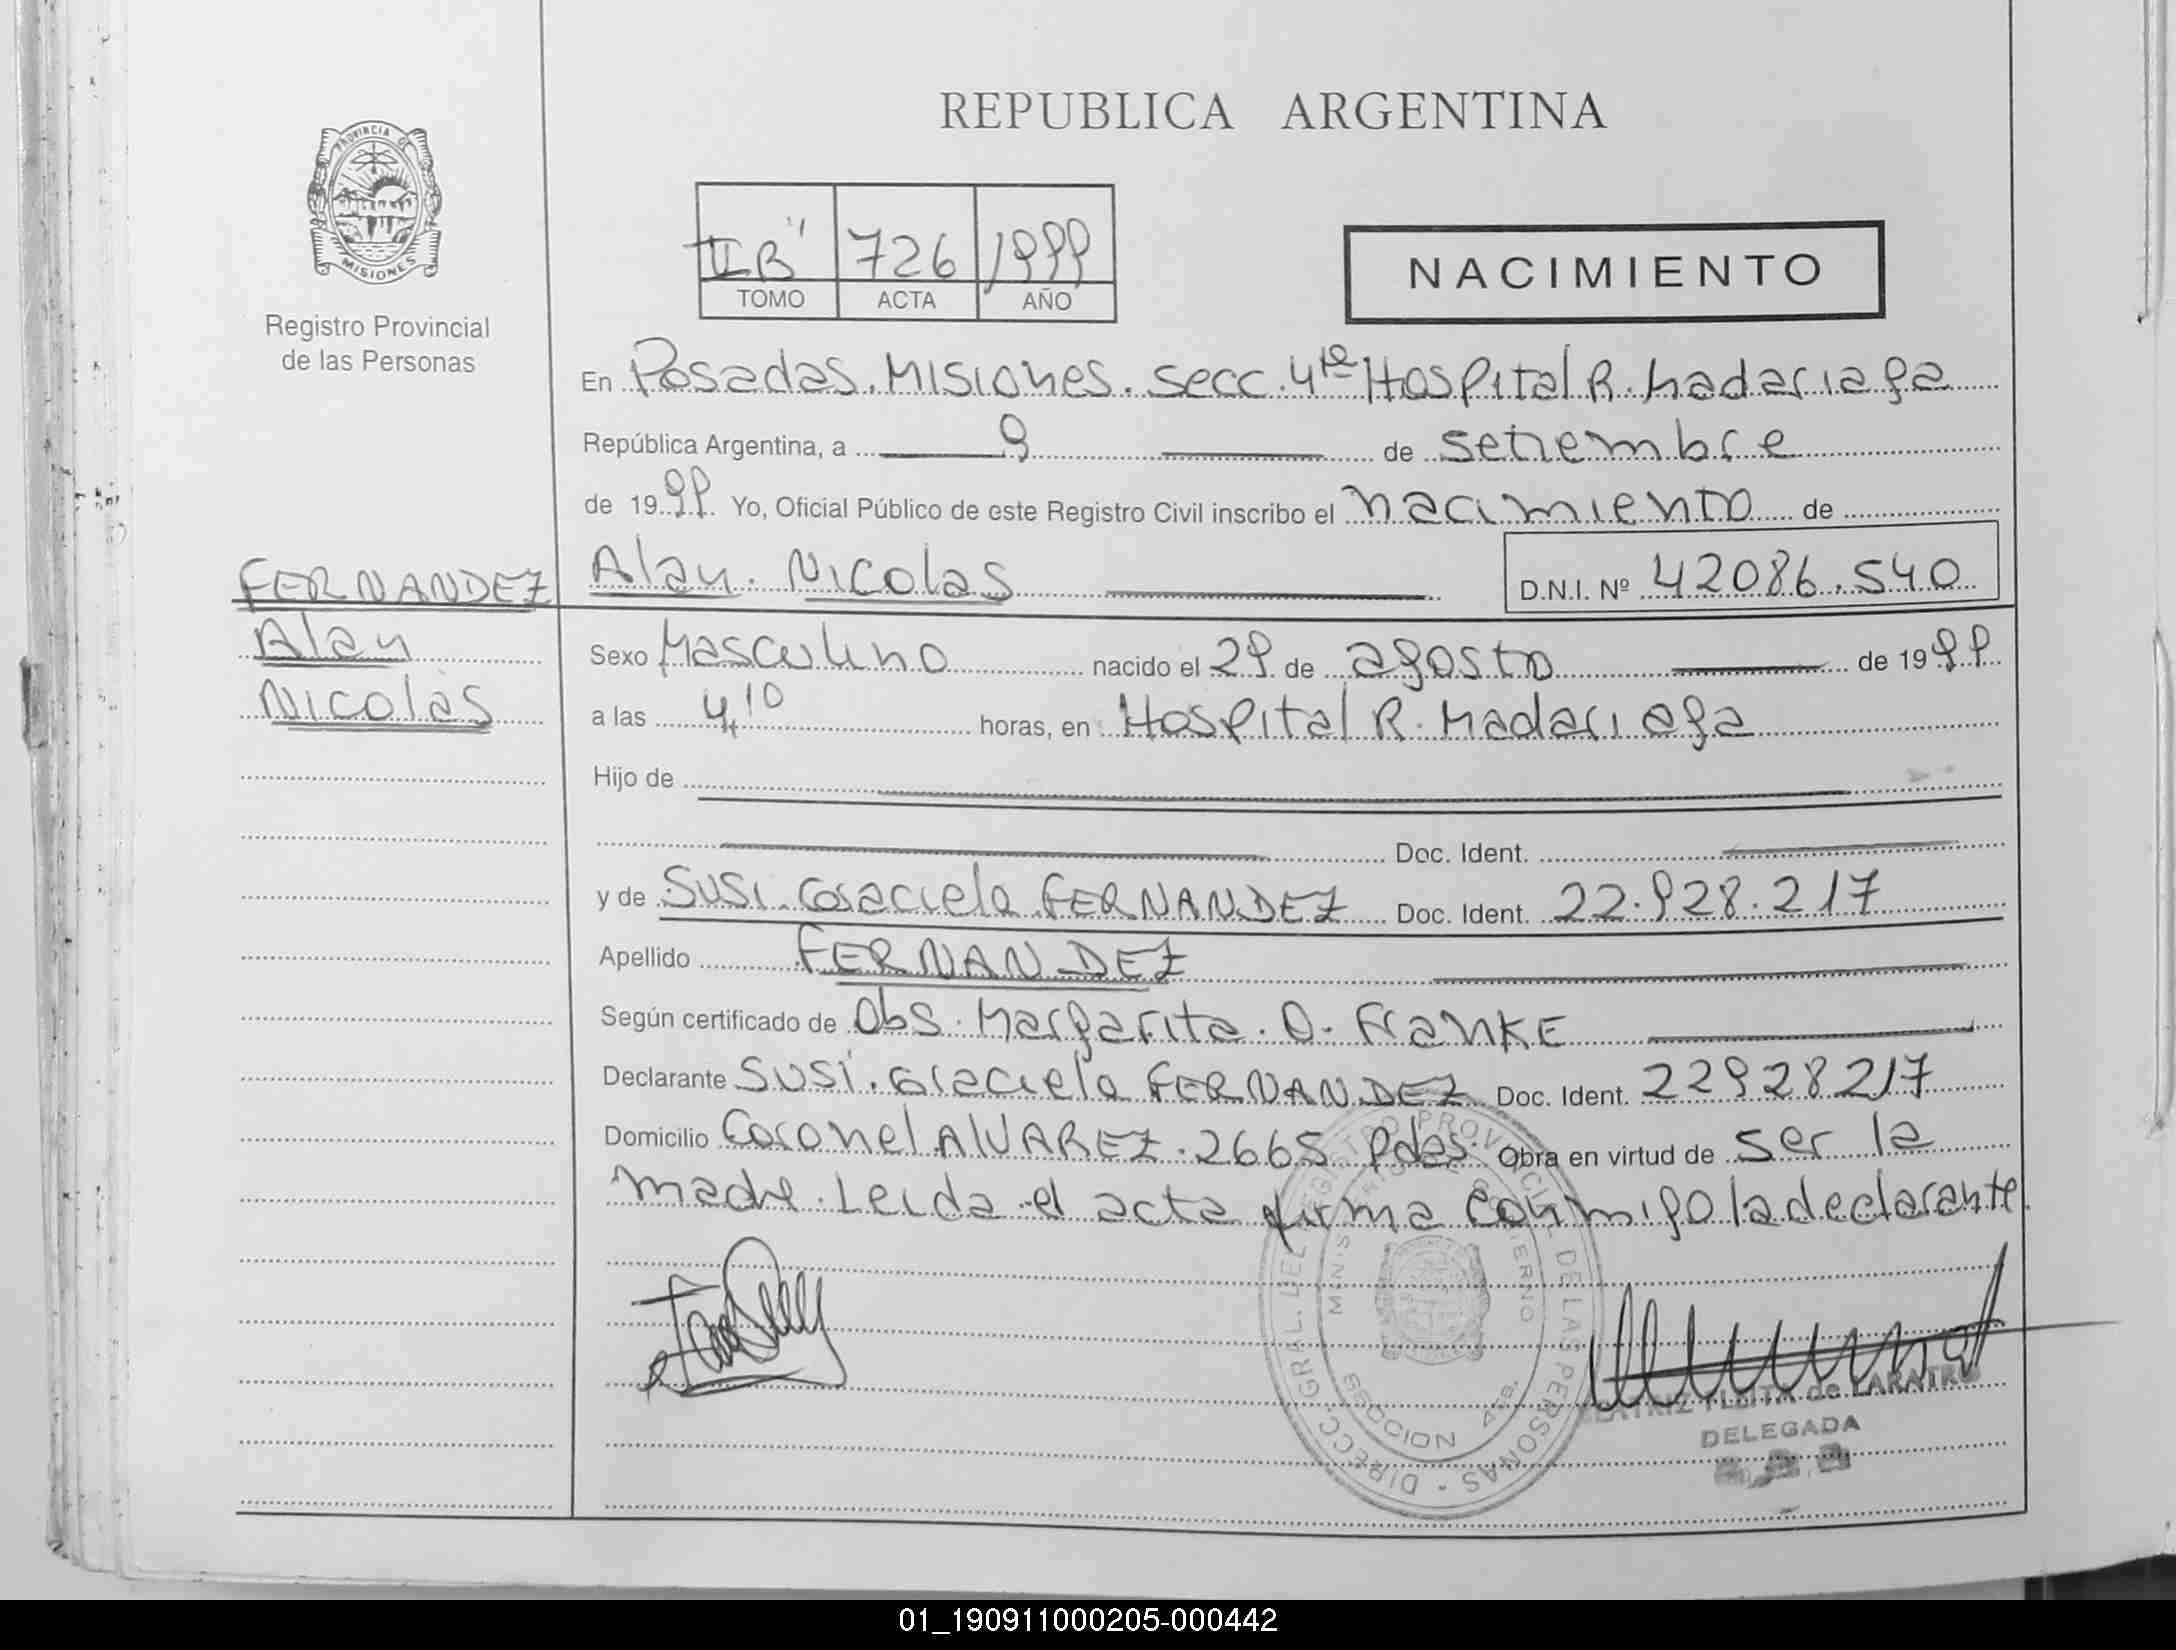 REPUBLICA ARGENTINA
PROVINCIA DE
MISIONES
Registro Provincial
de las Personas
II "B" 726 1999
TOMO ACTA AÑO
NACIMIENTO
En Posadas. Misiones. secc. 4ta Hospital R. Madariaga
República Argentina, a 9 de setiembre
de 1999 Yo, Oficial Público de este Registro Civil inscribo el nacimiento de
Alan. Nicolas D.N.I. Nº 42086.540
FERNANDEZ
Alan
Nicolas
Sexo Masculino nacido el 29 de agosto de 1999
a las 4,10 horas, en Hospital R. Madariaga
Hijo de
Doc. Ident.
y de Susi. Graciela FERNANDEZ Doc. Ident. 22.928.217
Apellido FERNANDEZ
Según certificado de Obs. Margarita. O. Franke
Declarante Susi. Graciela FERNANDEZ Doc. Ident. 22928217
Domicilio Coronel ALVAREZ. 2665 Pdas. Obra en virtud de ser la
madre. Leida el acta firma conmigo la declarante.
DIRECC. GRAL. DEL REGISTRO PROVINCIAL DE LAS PERSONAS
MINISTERIO DE GOBIERNO
SECCION 4ta.
BEATRIZ de
DELEGADA
01_190911000205-000442